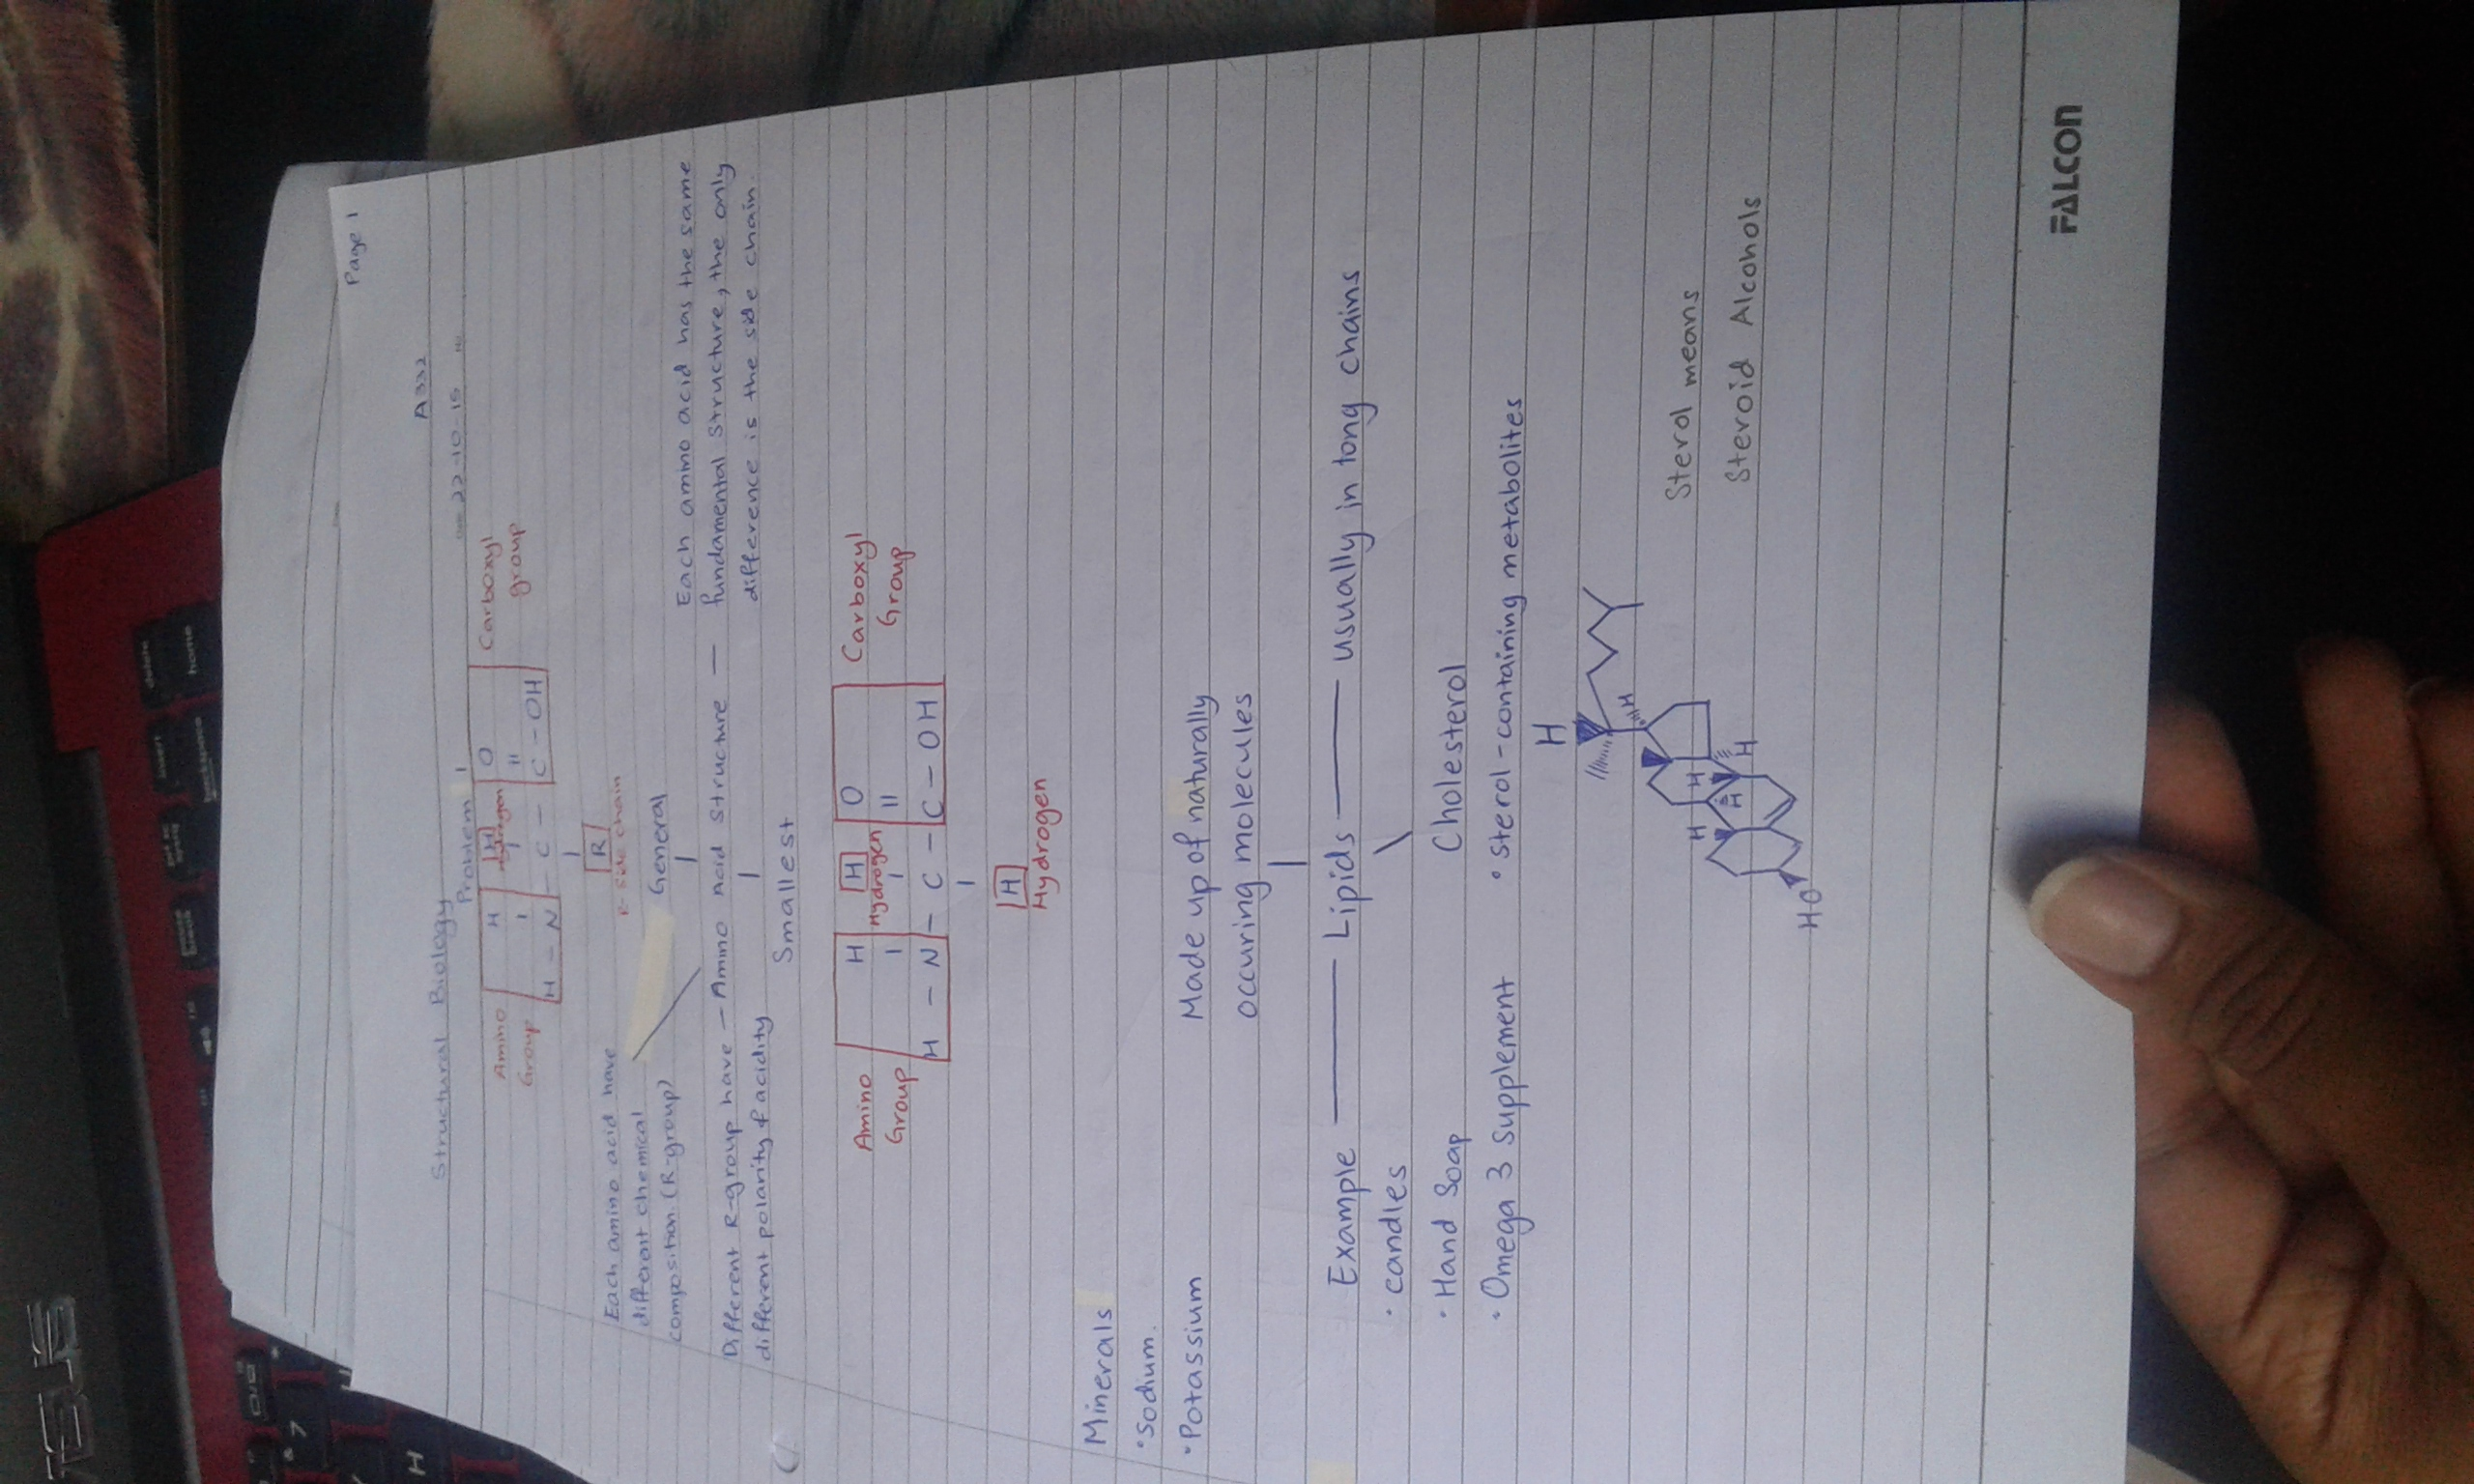 Page 1
A332
22-10-15
Structural Biology
Problem 1
Amino Group
H H O
Hydrogen
Carboxyl group
H - N - C - C - OH
R
R-side chain
Each amino acid have
different chemical
composition (R-group)
General
Different R-group have
different polarity & acidity
Amino Acid structure
Each amino acid has the same
fundamental structure, the only
difference is the side chain.
Smallest
Amino Group
H H O
Hydrogen
Carboxyl Group
H - N - C - C - OH
H
Hydrogen
Minerals
• Sodium.
• Potassium
Made up of naturally
occuring molecules
Example
Lipids
usually in long chains
• candles
• Hand Soap
• Omega 3 Supplement
Cholesterol
• Sterol-containing metabolites
H
H
H
H
H
H
HO
Sterol means
Steroid Alcohols
FALCON
ASUS
delete
home
insert
backspace
7
&
H